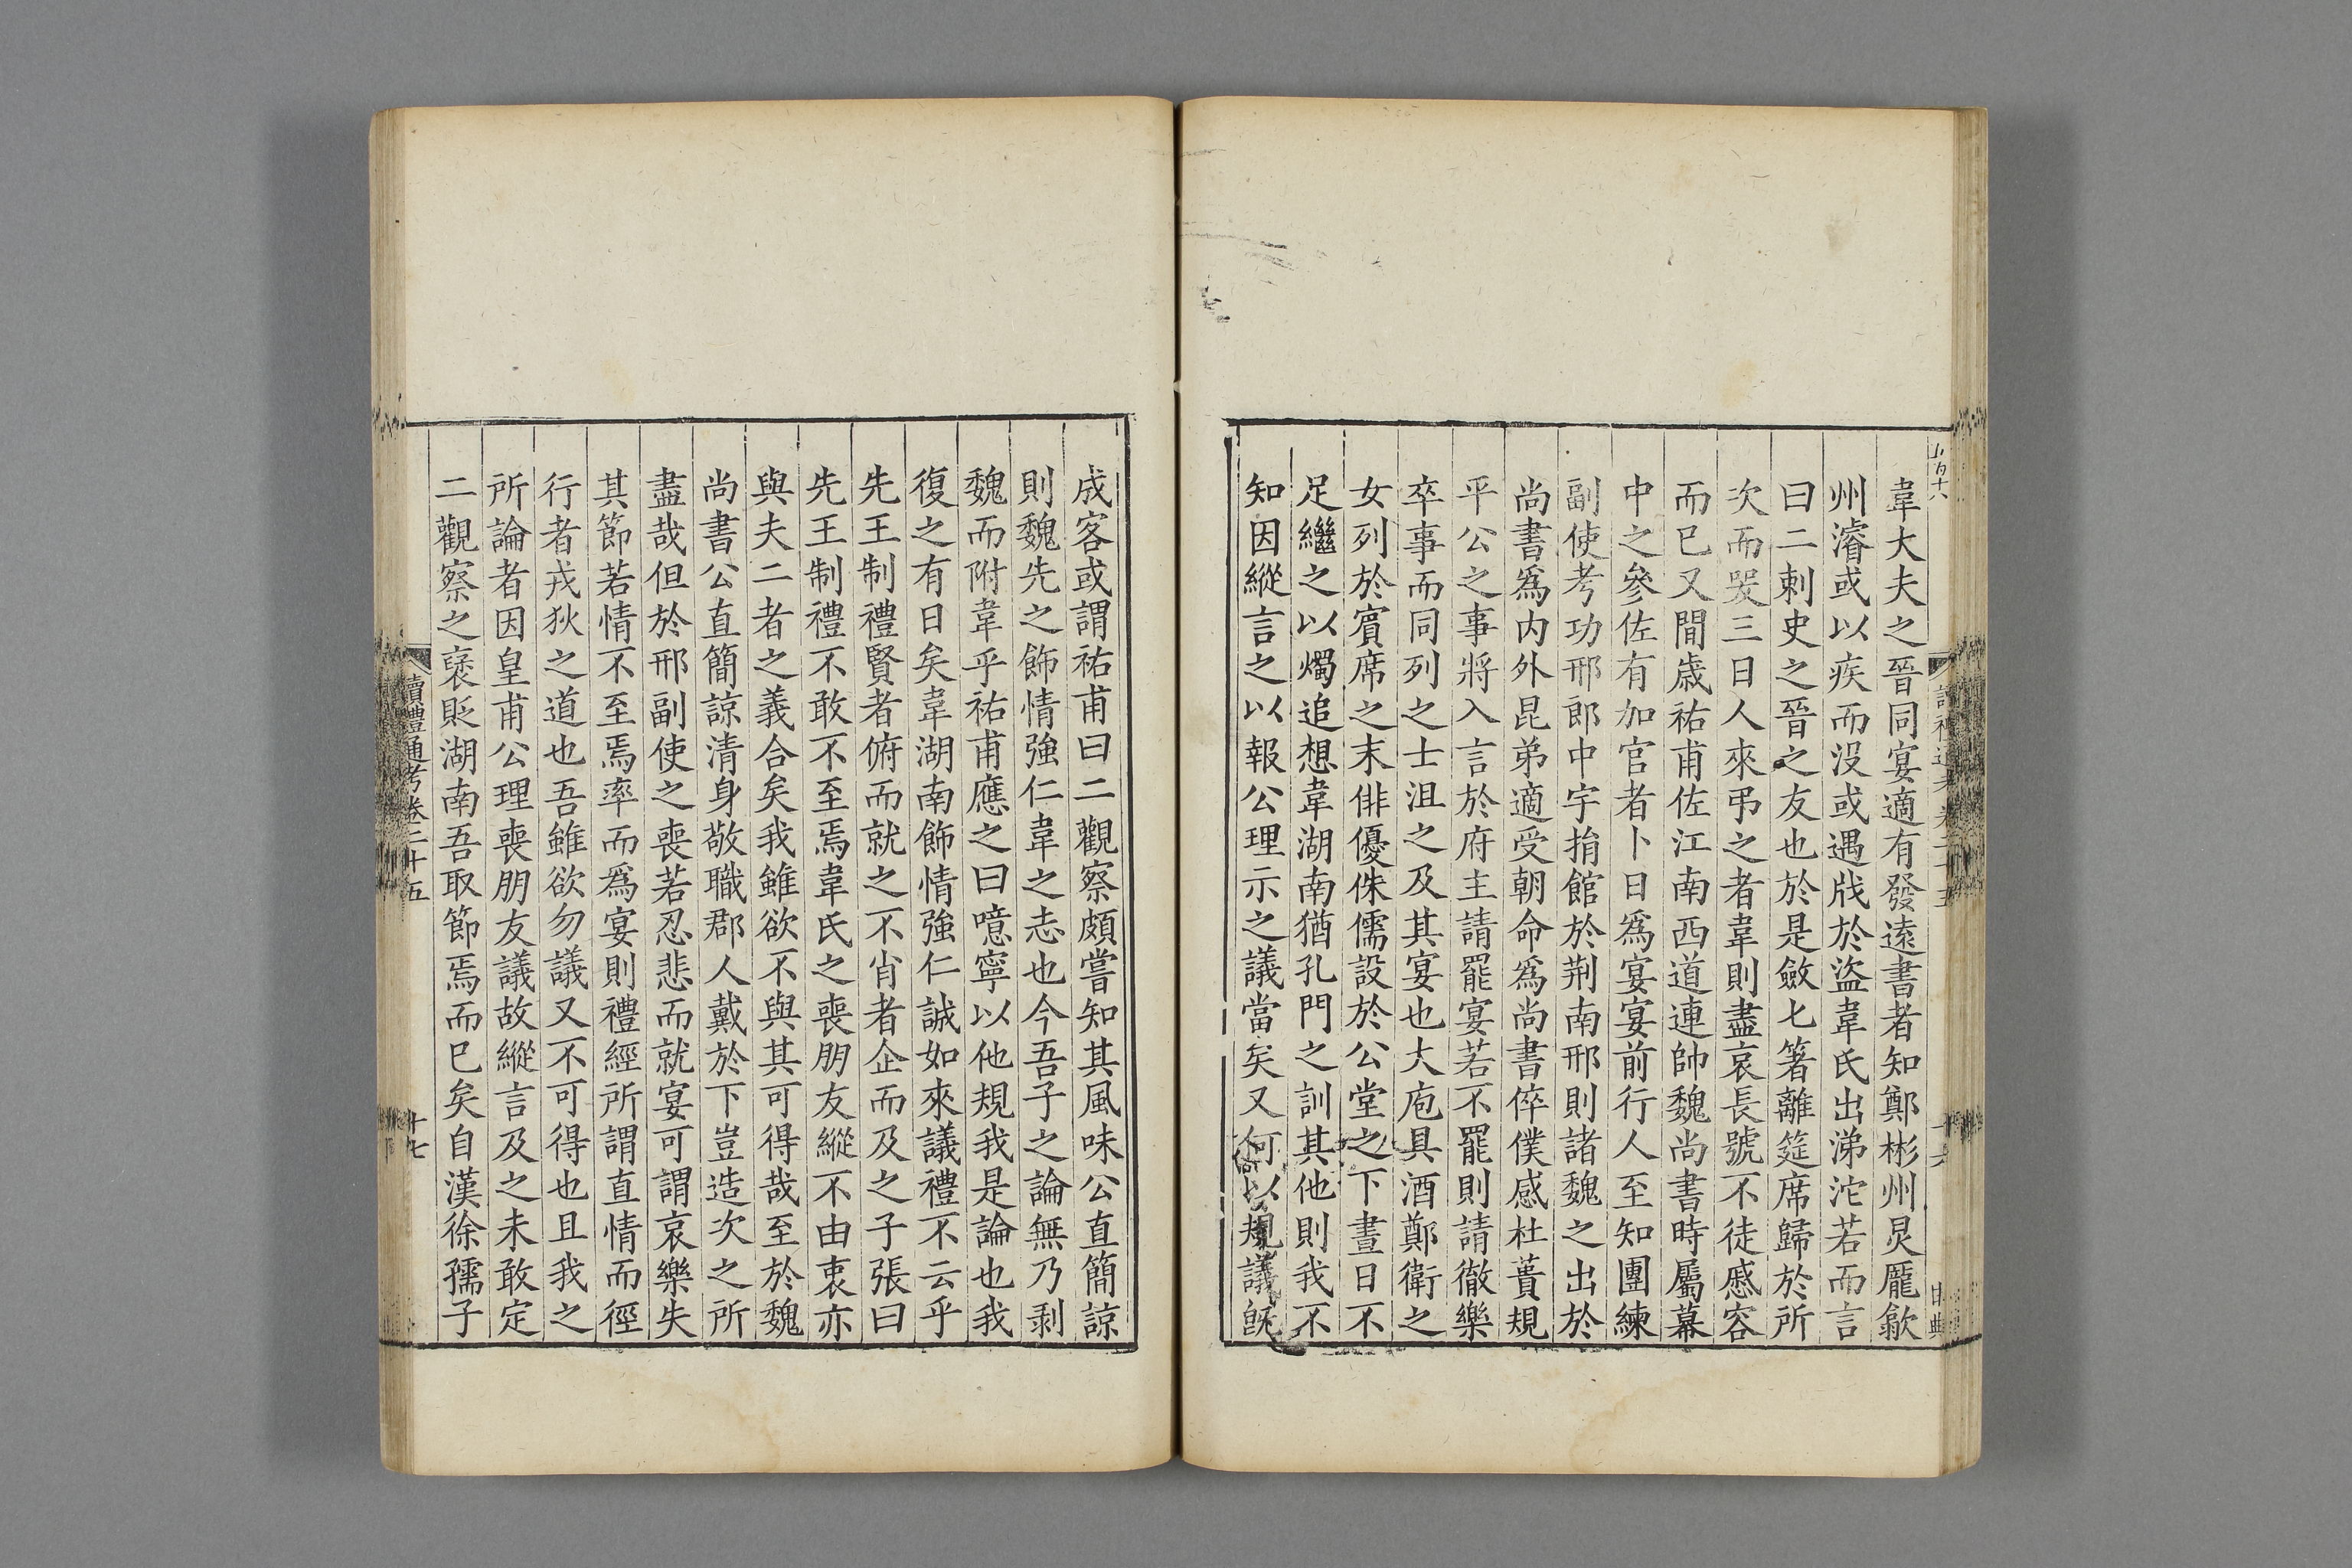 韋大夫之晉同宴適有發遠書者知鄭彬州炅龎歙
州濬或以疾而没或遇戕於盜韋氏出涕沱若而言
曰二刺史之晉之友也於是斂匕箸離筵席歸於所
次而哭三日人來弔之者韋則盡哀長號不徒慼容
而已又間歲祐甫佐江南西道連帥魏尚書時屬幕
中之參佐有加官者卜日爲宴宴前行人至知團練
副使考功邢郎中宇捐館於荆南邢則諸魏之出於
尚書爲内外昆弟適受朝命爲尚書倅僕感杜蕢規
平公之事將入言於府主請罷宴若不罷則請徹樂
卒事而同列之士沮之及其宴也大庖具酒鄭衛之
女列於賓席之末俳優侏儒設於公堂之下晝日不
足繼之以燭追想韋湖南猶孔門之訓其他則我不
知因縱言之以報公理示之議當矣又何以規議旣
成客或謂祐甫曰二觀察頗嘗知其風味公直簡諒
則魏先之飾情強仁韋之志也今吾子之論無乃剥
魏而附韋乎祐甫應之曰噫寧以他規我是論也我
復之有日矣韋湖南飾情強仁誠如來議禮不云乎
先王制禮賢者俯而就之不肖者企而及之子張曰
先王制禮不敢不至焉韋氏之喪朋友縱不由衷亦
與夫二者之義合矣我雖欲不與其可得哉至於魏
尚書公直簡諒清身敬職郡人戴於下豈造次之所
盡哉但於邢副使之喪若忍悲而就宴可謂哀樂失
其節若情不至焉率而爲宴則禮經所謂直情而徑
行者戎狄之道也吾雖欲勿議又不可得也且我之
所論者因皇甫公理喪朋友議故縱言及之未敢定
二觀察之襃貶湖南吾取節焉而已矣自漢徐孺子
讀禮通考卷二十五
十七